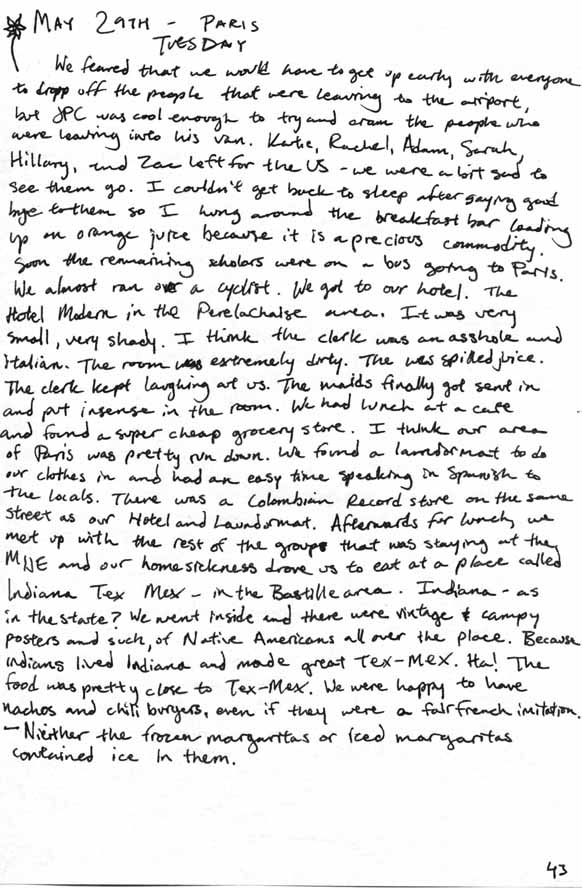 MAY 29TH - PARIS
TUESDAY
We feared that we would have to get up early with everyone
to dropp off the people that were leaving to the airport,
but JPC was cool enough to try and cram the people who
were leaving into his van. Katie, Rachel, Adam, Sarah,
Hillary, and Zac left for the US - we were a bit sad to
see them go. I couldn't get back to sleep after saying good
bye to them so I hung around the breakfast bar loading
up on orange juice because it is a precious commodity.
Soon the remaining scholars were on a bus going to Paris.
We almost ran over a cyclist. We got to our hotel. The
Hotel Modern in the Perelachaise area. It was very
small, very shady. I think the clerk was an asshole and
Italian. The room was extremely dirty. The was spilled juice.
The clerk kept laughing at us. The maids finally got sent in
and put insense in the room. We had lunch at a cafe
and found a super cheap grocery store. I think our area
of Paris was pretty run down. We found a laundormat to do
our clothes in and had an easy time speaking in Spanish to
the locals. There was a Colombian Record store on the same
street as our Hotel and Laundormat. Afterwards for lunch, we
met up with the rest of the group that was staying at the
MIJE and our homesickness drove us to eat at a place called
Indiana Tex Mex - in the Bastille area. Indiana - as
in the state? We went inside and there were vintage & campy
posters and such, of Native Americans all over the place. Because
indians lived Indiana and made great Tex-Mex. Ha! The
food was pretty close to Tex-Mex. We were happy to have
nachos and chili burgers, even if they were a fair french imitation.
- Niether the frozen margaritas or iced margaritas
contained ice in them.
43